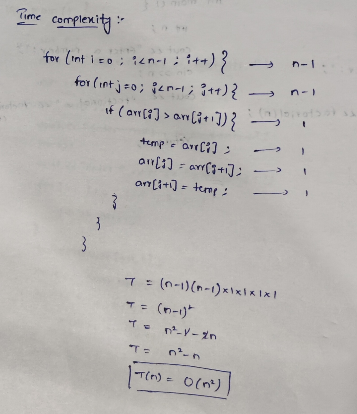 Time complexity :-
for (int i = 0 ; i<n-1 ; i++) } → n-1
for (int j=0; j<n-1; j++) { → n-1
if (arr[j] > arr[j+1]) { → 1
temp = arr[j] ; → 1
arr[j] = arr[j+1]; → 1
arr[j+1] = temp ; → 1
}
}
}
T = (n-1)(n-1)×1×1×1×1
T = (n-1)²
T = n²-1-2n
T = n²-n
T(n) = O(n²)